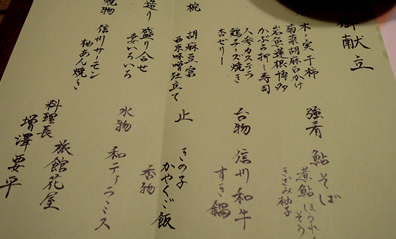 御献立
木の実 干柿
菊菜胡麻白かけ
岩魚蓮根博多
かぶら押し寿司
人参カステラ
鶴チーズ焼き
杏ゼリー
椀 胡麻豆富
西京味噌仕立て
造り 盛り合せ
妻いろいろ
焼物 信州サーモン
柚あん焼き
強肴 鮎そば
煮鮎 ほうれんそう
きざみ柚子
台物 信州和牛
すき鍋
止 きの子
かやくご飯
香物
水物 和テラミス
旅館花屋
料理長
増澤要平